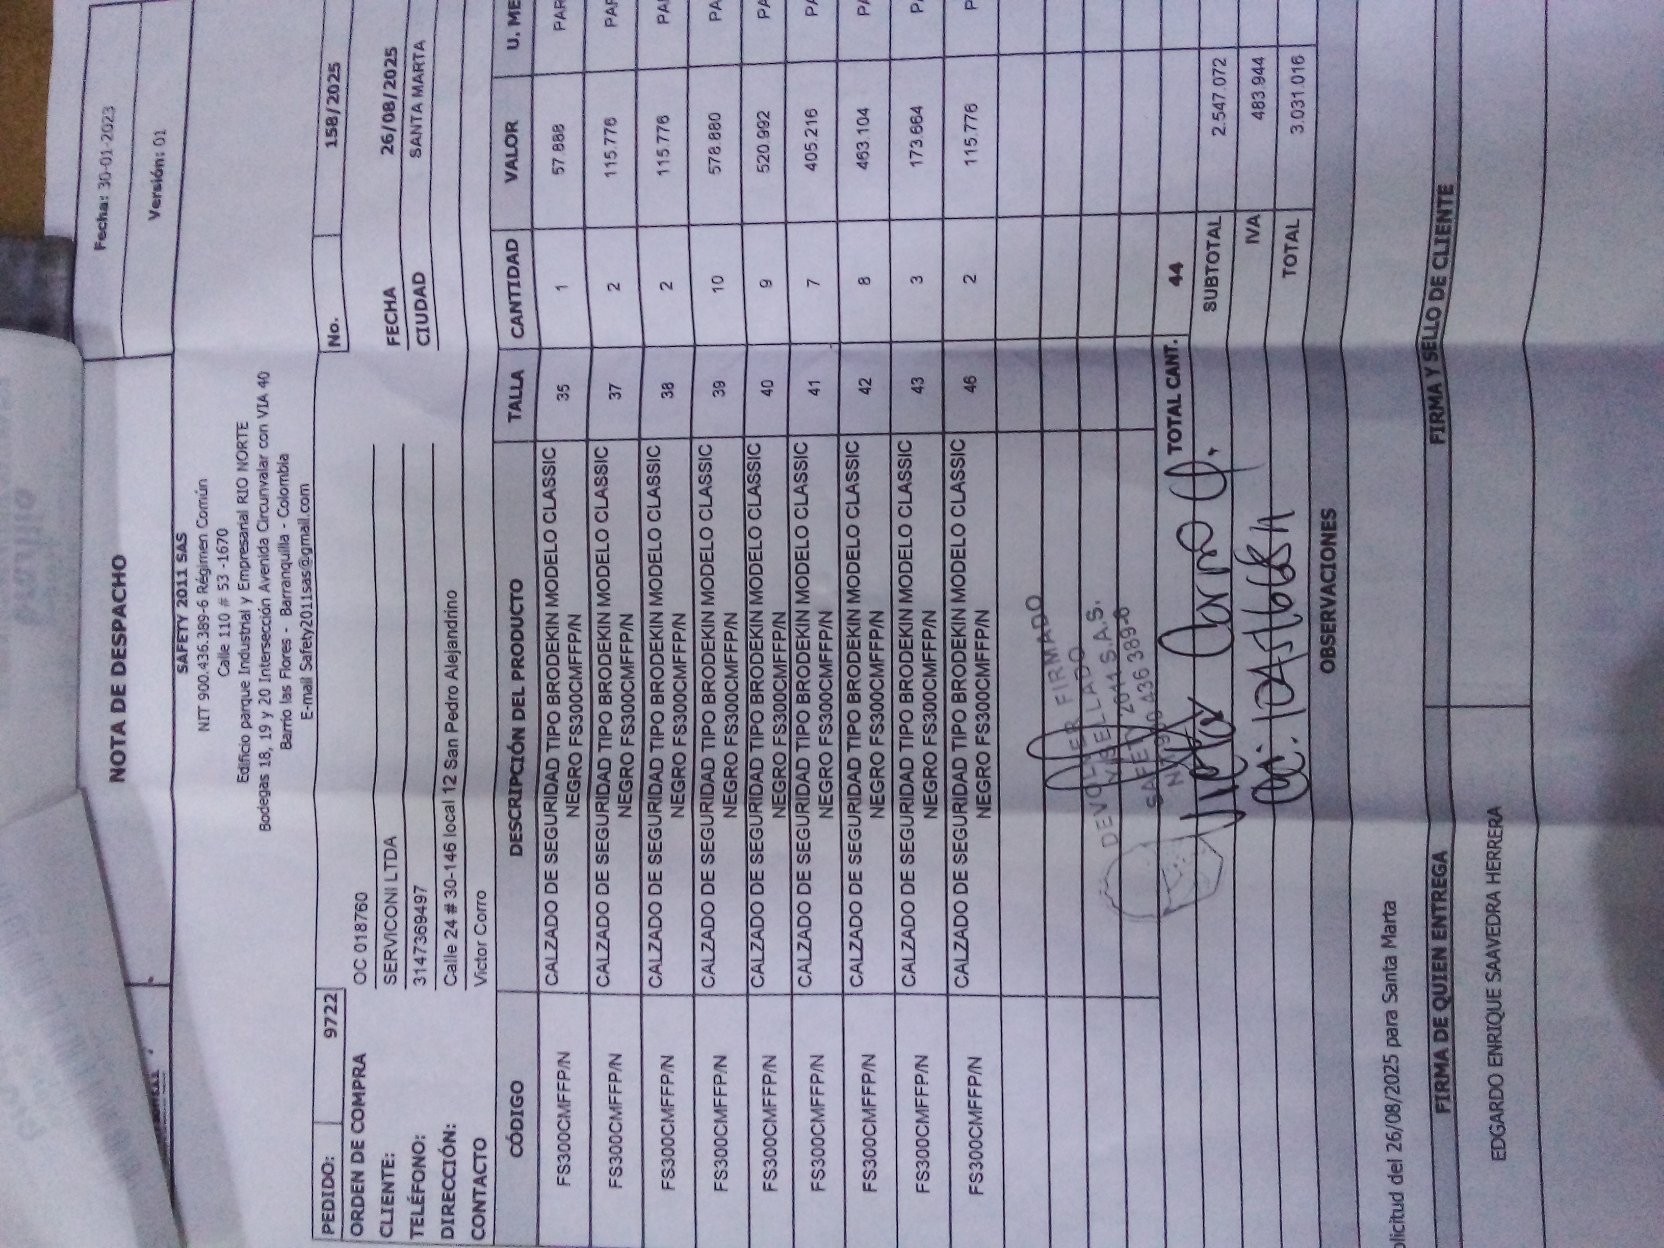 Fecha: 30-01-2023
Versión: 01
NOTA DE DESPACHO
SAFETY 2011 SAS
NIT 900.436.389-6 Régimen Común
Calle 110 # 53 -1670
Edificio parque Industrial y Empresarial RIO NORTE
Bodegas 18, 19 y 20 Intersección Avenida Circunvalar con VIA 40
Barrio las Flores - Barranquilla - Colombia
E-mail Safety2011sas@gmail.com
PEDIDO: 9722 No. 158/2025
ORDEN DE COMPRA OC 018760
CLIENTE: SERVICONI LTDA FECHA 26/08/2025
TELÉFONO: 3147369497 CIUDAD SANTA MARTA
DIRECCIÓN: Calle 24 # 30-146 local 12 San Pedro Alejandrino
CONTACTO Victor Corro
CÓDIGO DESCRIPCIÓN DEL PRODUCTO TALLA CANTIDAD VALOR U. ME
FS300CMFFP/N CALZADO DE SEGURIDAD TIPO BRODEKIN MODELO CLASSIC NEGRO FS300CMFFP/N 35 1 57.888 PAR
FS300CMFFP/N CALZADO DE SEGURIDAD TIPO BRODEKIN MODELO CLASSIC NEGRO FS300CMFFP/N 37 2 115.776 PAR
FS300CMFFP/N CALZADO DE SEGURIDAD TIPO BRODEKIN MODELO CLASSIC NEGRO FS300CMFFP/N 38 2 115.776 PA
FS300CMFFP/N CALZADO DE SEGURIDAD TIPO BRODEKIN MODELO CLASSIC NEGRO FS300CMFFP/N 39 10 578.880 PA
FS300CMFFP/N CALZADO DE SEGURIDAD TIPO BRODEKIN MODELO CLASSIC NEGRO FS300CMFFP/N 40 9 520.992 PA
FS300CMFFP/N CALZADO DE SEGURIDAD TIPO BRODEKIN MODELO CLASSIC NEGRO FS300CMFFP/N 41 7 405.216 PA
FS300CMFFP/N CALZADO DE SEGURIDAD TIPO BRODEKIN MODELO CLASSIC NEGRO FS300CMFFP/N 42 8 463.104 PA
FS300CMFFP/N CALZADO DE SEGURIDAD TIPO BRODEKIN MODELO CLASSIC NEGRO FS300CMFFP/N 43 3 173.664 PA
FS300CMFFP/N CALZADO DE SEGURIDAD TIPO BRODEKIN MODELO CLASSIC NEGRO FS300CMFFP/N 46 2 115.776 P
DEVOLVER FIRMADO
Y SELLADO
SAFETY 2011 S.A.S.
NIT 900 436 389-6
TOTAL CANT. 44
SUBTOTAL 2.547.072
IVA 483.944
TOTAL 3.031.016
OBSERVACIONES
olicitud del 26/08/2025 para Santa Marta
FIRMA DE QUIEN ENTREGA FIRMA Y SELLO DE CLIENTE
EDGARDO ENRIQUE SAAVEDRA HERRERA